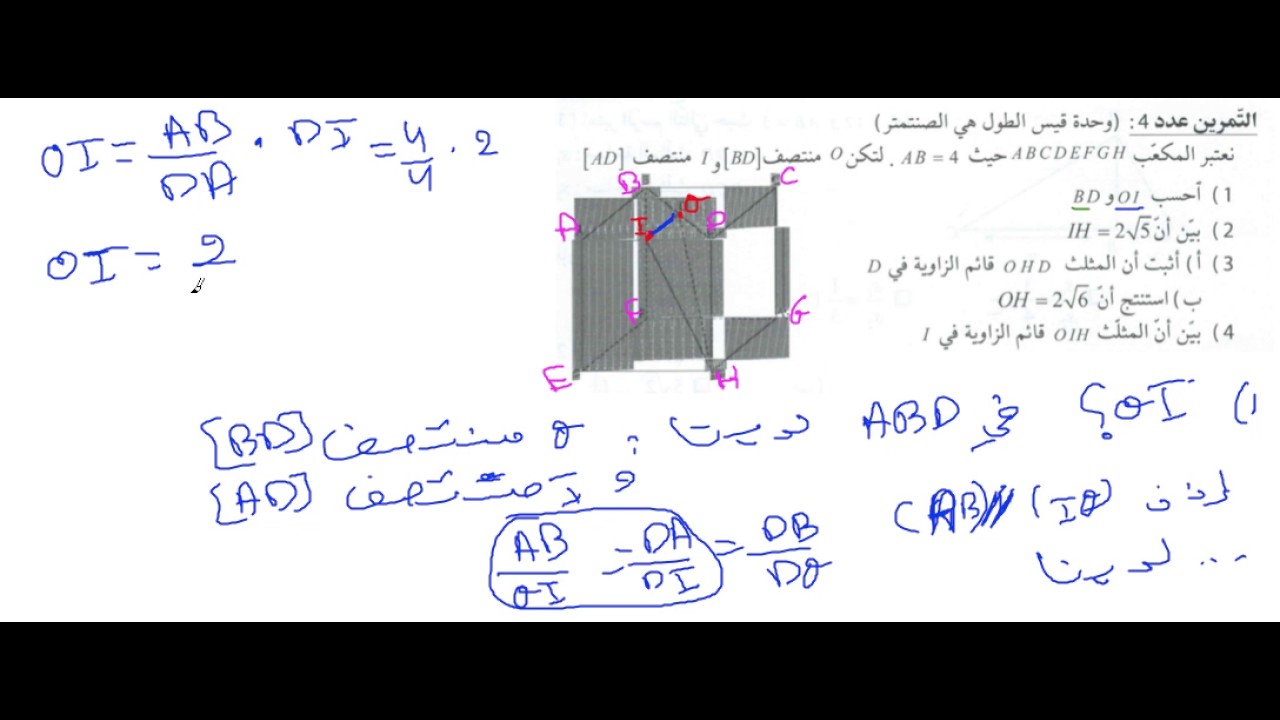 التمرين عدد 4: (وحدة قيس الطول هي الصنتمتر)
نعتبر المكعّب ABCDEFGH حيث AB = 4 . لتكن O منتصف [BD] و I منتصف [AD]
1) أحسب OI و BD
2) بيّن أنّ IH = 2√5
3) أ) أثبت أن المثلث OHD قائم الزاوية في D
ب) استنتج أنّ OH = 2√6
4) بيّن أنّ المثلّث OIH قائم الزاوية في I
B C
O
A I D
F G
E H
OI = AB/DA . DI = 4/4 . 2
OI = 2
1) OI؟ في ABD لدينا : O منتصف [BD]
و I منتصف [AD]
إذن (IO) // (AB)
لدينا ...
AB/OI = DA/DI = DB/DO